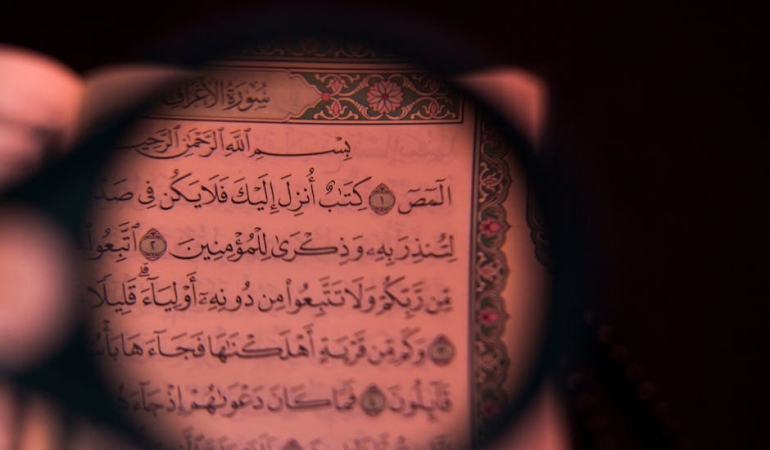 سُورَةُ الأَعْرَافِ
بِسْمِ ٱللَّهِ ٱلرَّحْمَٰنِ ٱلرَّحِيمِ
الٓمٓصٓ ١ كِتَٰبٌ أُنزِلَ إِلَيْكَ فَلَا يَكُن فِى
لِتُنذِرَ بِهِۦ وَذِكْرَىٰ لِلْمُؤْمِنِينَ ٢ ٱتَّبِعُوا۟
مِّن رَّبِّكُمْ وَلَا تَتَّبِعُوا۟ مِن دُونِهِۦٓ أَوْلِيَآءَ ۗ قَلِيلًا
٣ وَكَم مِّن قَرْيَةٍ أَهْلَكْنَٰهَا فَجَآءَهَا
قَآئِلُونَ ٤ فَمَا كَانَ دَعْوَىٰهُمْ إِذْ